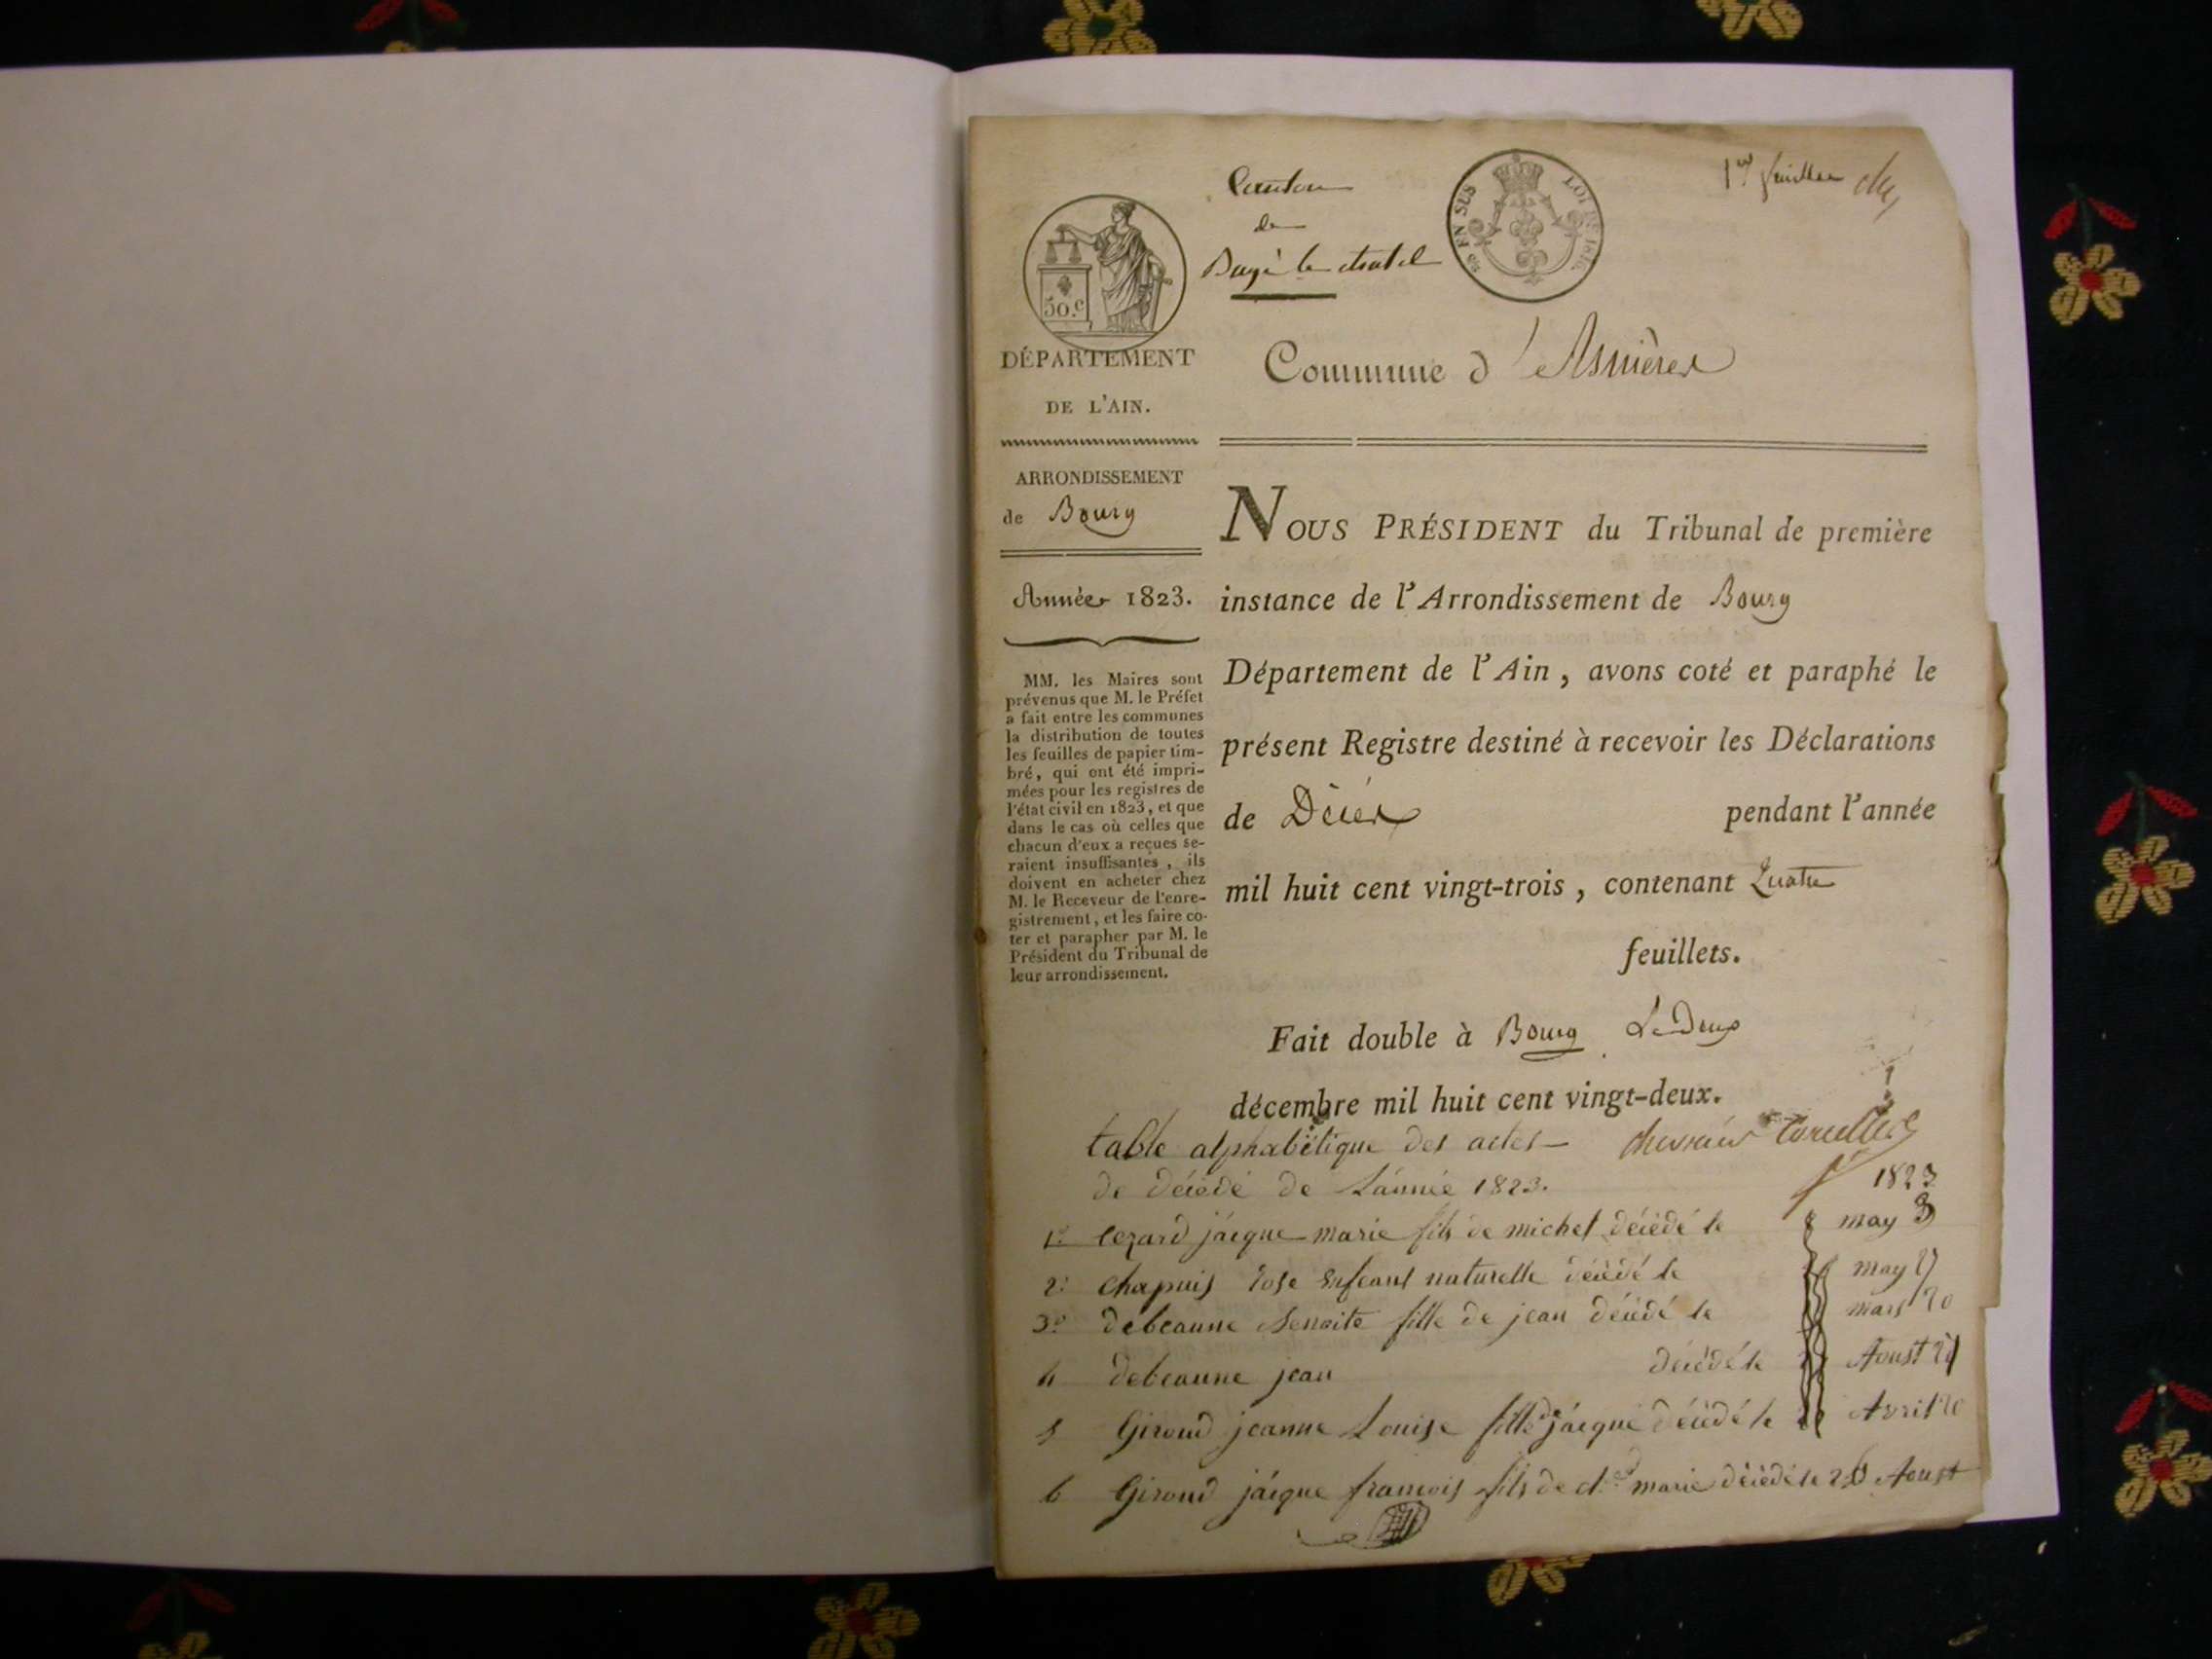 1er feuillet
Canton
de
Bagé le chatel
50 EN SUS
LOI DE 1816.
50.c
DÉPARTEMENT
DE L'AIN.
Commune d'Asnières
ARRONDISSEMENT
de Bourg
Année 1823.
MM. les Maires sont
prévenus que M. le Préfet
a fait entre les communes
la distribution de toutes
les feuilles de papier tim-
bré, qui ont été impri-
mées pour les registres de
l'état civil en 1823, et que
dans le cas où celles que
chacun d'eux a reçues se-
raient insuffisantes, ils
doivent en acheter chez
M. le Receveur de l'enre-
gistrement, et les faire co-
ter et parapher par M. le
Président du Tribunal de
leur arrondissement.
NOUS PRÉSIDENT du Tribunal de première
instance de l'Arrondissement de Bourg
Département de l'Ain, avons coté et paraphé le
présent Registre destiné à recevoir les Déclarations
de Décès pendant l'année
mil huit cent vingt-trois, contenant Quatre
feuillets.
Fait double à Bourg Le Deux
décembre mil huit cent vingt-deux.
table alphabétique des actes
de décédé de L'année 1823. 1823
1º cezard jacque marie fils de michel décédé le may 3
2º chapuis rose enfeant naturelle décédé le may
3º debeaune benoite fille de jean décédé le mars 20
4 debeaune jean décédé le Aoust
5 Giroud jeanne Louise fille de jacque décédé le Avril 20
6 Giroud jacque francois fils de marie décédé le Aoust